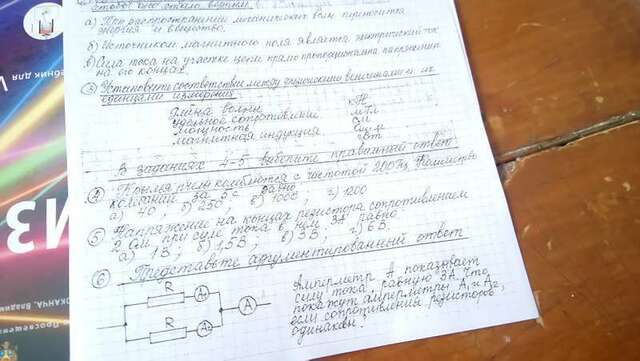 чтобы оно стало верным.
а) При распространении механических волн переносится
энергия и вещество.
б) Источником магнитного поля является электрический ток
в) Сила тока на участке цепи прямо пропорциональна
на его концах.
③ Установить соответствие между физическими величинами и их
единицами измерения
Длина волны
удельное сопротивление
мощность
магнитная индукция
кН
мТл
см
Ом·м
кВт
В заданиях 4-5 выберите правильный ответ
④ Крылья пчелы колеблются с частотой 200 Гц. Количество
колебаний за 5 с равно
а) 40; б) 250; в) 1000; г) 1200
⑤ Напряжение на концах резистора сопротивлением
2 Ом при силе тока в нём 3А равно
а) 1В; б) 1,5В; в) 3В; г) 6В.
⑥ Представьте аргументированный ответ
R
A₁
A
R
A₂
Амперметр А показывает
силу тока, равную 3А. Что
покажут амперметры А₁ и А₂,
если сопротивления резисторов
одинаковы?
ебник для
ИЗ
ОКАНЧА, Владими
Просвещени